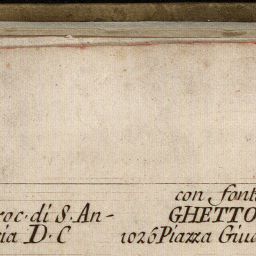 con font
roc. di S. An-
GHETTO
ria D. C
1026 Piazza Giud